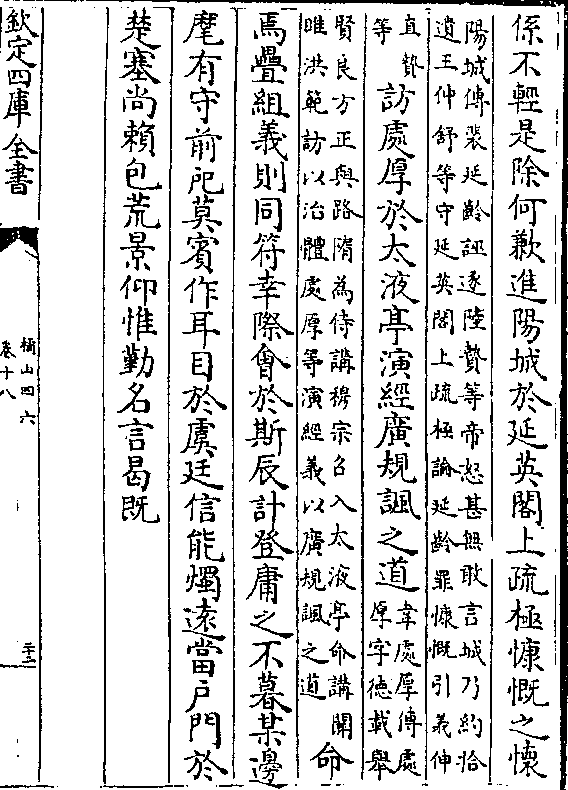 係不輕是除何歉進陽城於延英閣上疏極慷慨之懷
陽城傳裴延齡誣逐陸贄等帝怒甚無敢言城乃約拾
遺王仲舒等守延英閣上疏極論延齡罪慷慨引義伸
直贄
等
訪處厚於太液亭演經廣規諷之道
韋處厚傳處
厚字德載舉
賢良方正與路隋為侍講穆宗召入太液亭命講關
睢洪範訪以治體處厚等演經義以廣規諷之道
命
焉疊組義則同符幸際會於斯辰計登庸之不暮某邊
麾有守前席莫賓作耳目於虞廷信能燭遠當户門於
楚塞尚賴包荒景仰惟勤名言曷既
欽定四庫全書
橘山四六
卷十八
二十二